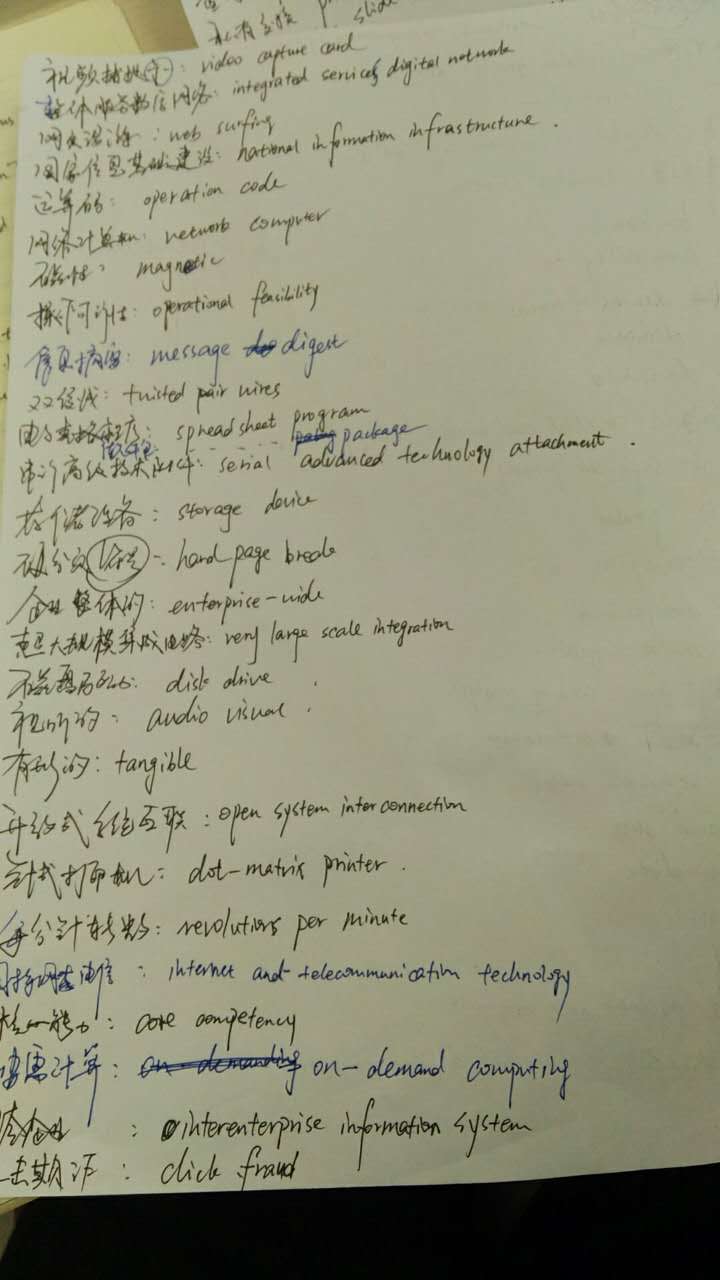 slide
视频捕捉卡: video capture card
整体服务数字网络: integrated services digital network
网页漫游: web surfing
国家信息基础建设: national information infrastructure.
运算码: operation code
网络计算机: network computer
磁性: magnetic
操作可行性: operational feasibility
信息摘要: message digest
双绞线: twisted pair wires
电子表格程序: spreadsheet program
package
串行高级技术附件: serial advanced technology attachment.
存储设备: storage device
硬分页: hard page break
企业整体的: enterprise-wide
超大规模集成电路: very large scale integration
磁盘驱动: disk drive
视听的: audio visual.
有形的: tangible
开放式系统互联: open system interconnection
针式打印机: dot-matrix printer.
每分钟转数: revolutions per minute
: internet and telecommunication technology
核心能力: core competency
按需计算: on-demand computing
: interenterprise information system
击欺诈: click fraud